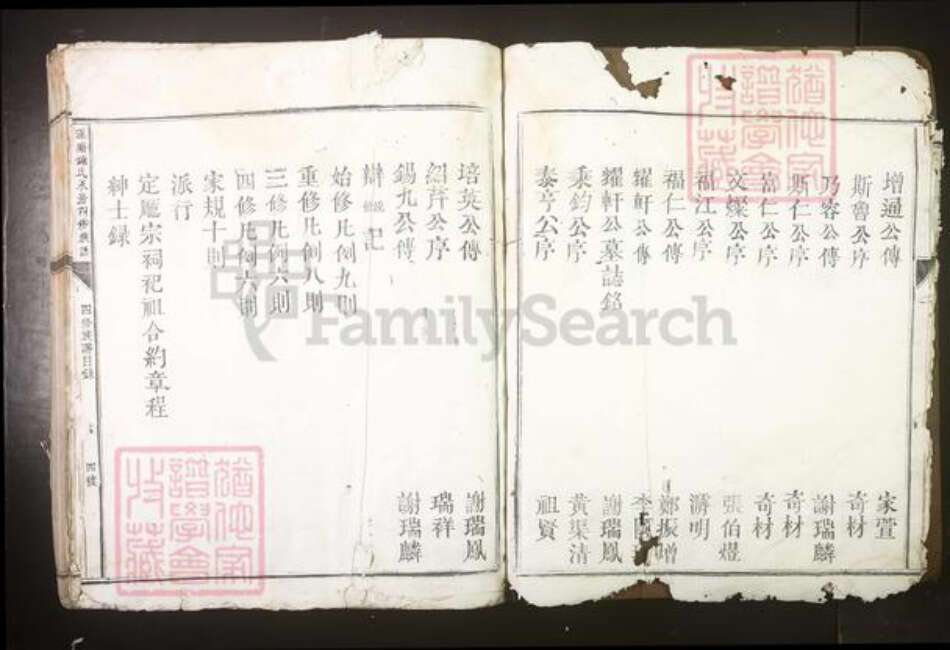 增通公傳 家萱
斯魯公序 奇材
乃容公傳 謝瑞麟
斯仁公序 奇材
富仁公序 奇材
文燦公序 張伯熤
福江公序 濟明
福仁公傳 鄭振增
耀軒公傳 李
耀軒公墓誌銘 謝瑞鳳
秉鈞公序 黃渠清
泰亨公序 祖賢
培英公傳 謝瑞鳳
紹芹公序 瑞祥
錫九公傳 謝瑞麟
辯 記
始修凡例九則
重修凡例八則
三修凡例六則
四修凡例六則
家規十則
派行
定廳宗祠祀祖合約章程
紳士錄
四修族譜目錄
四號
FamilySearch